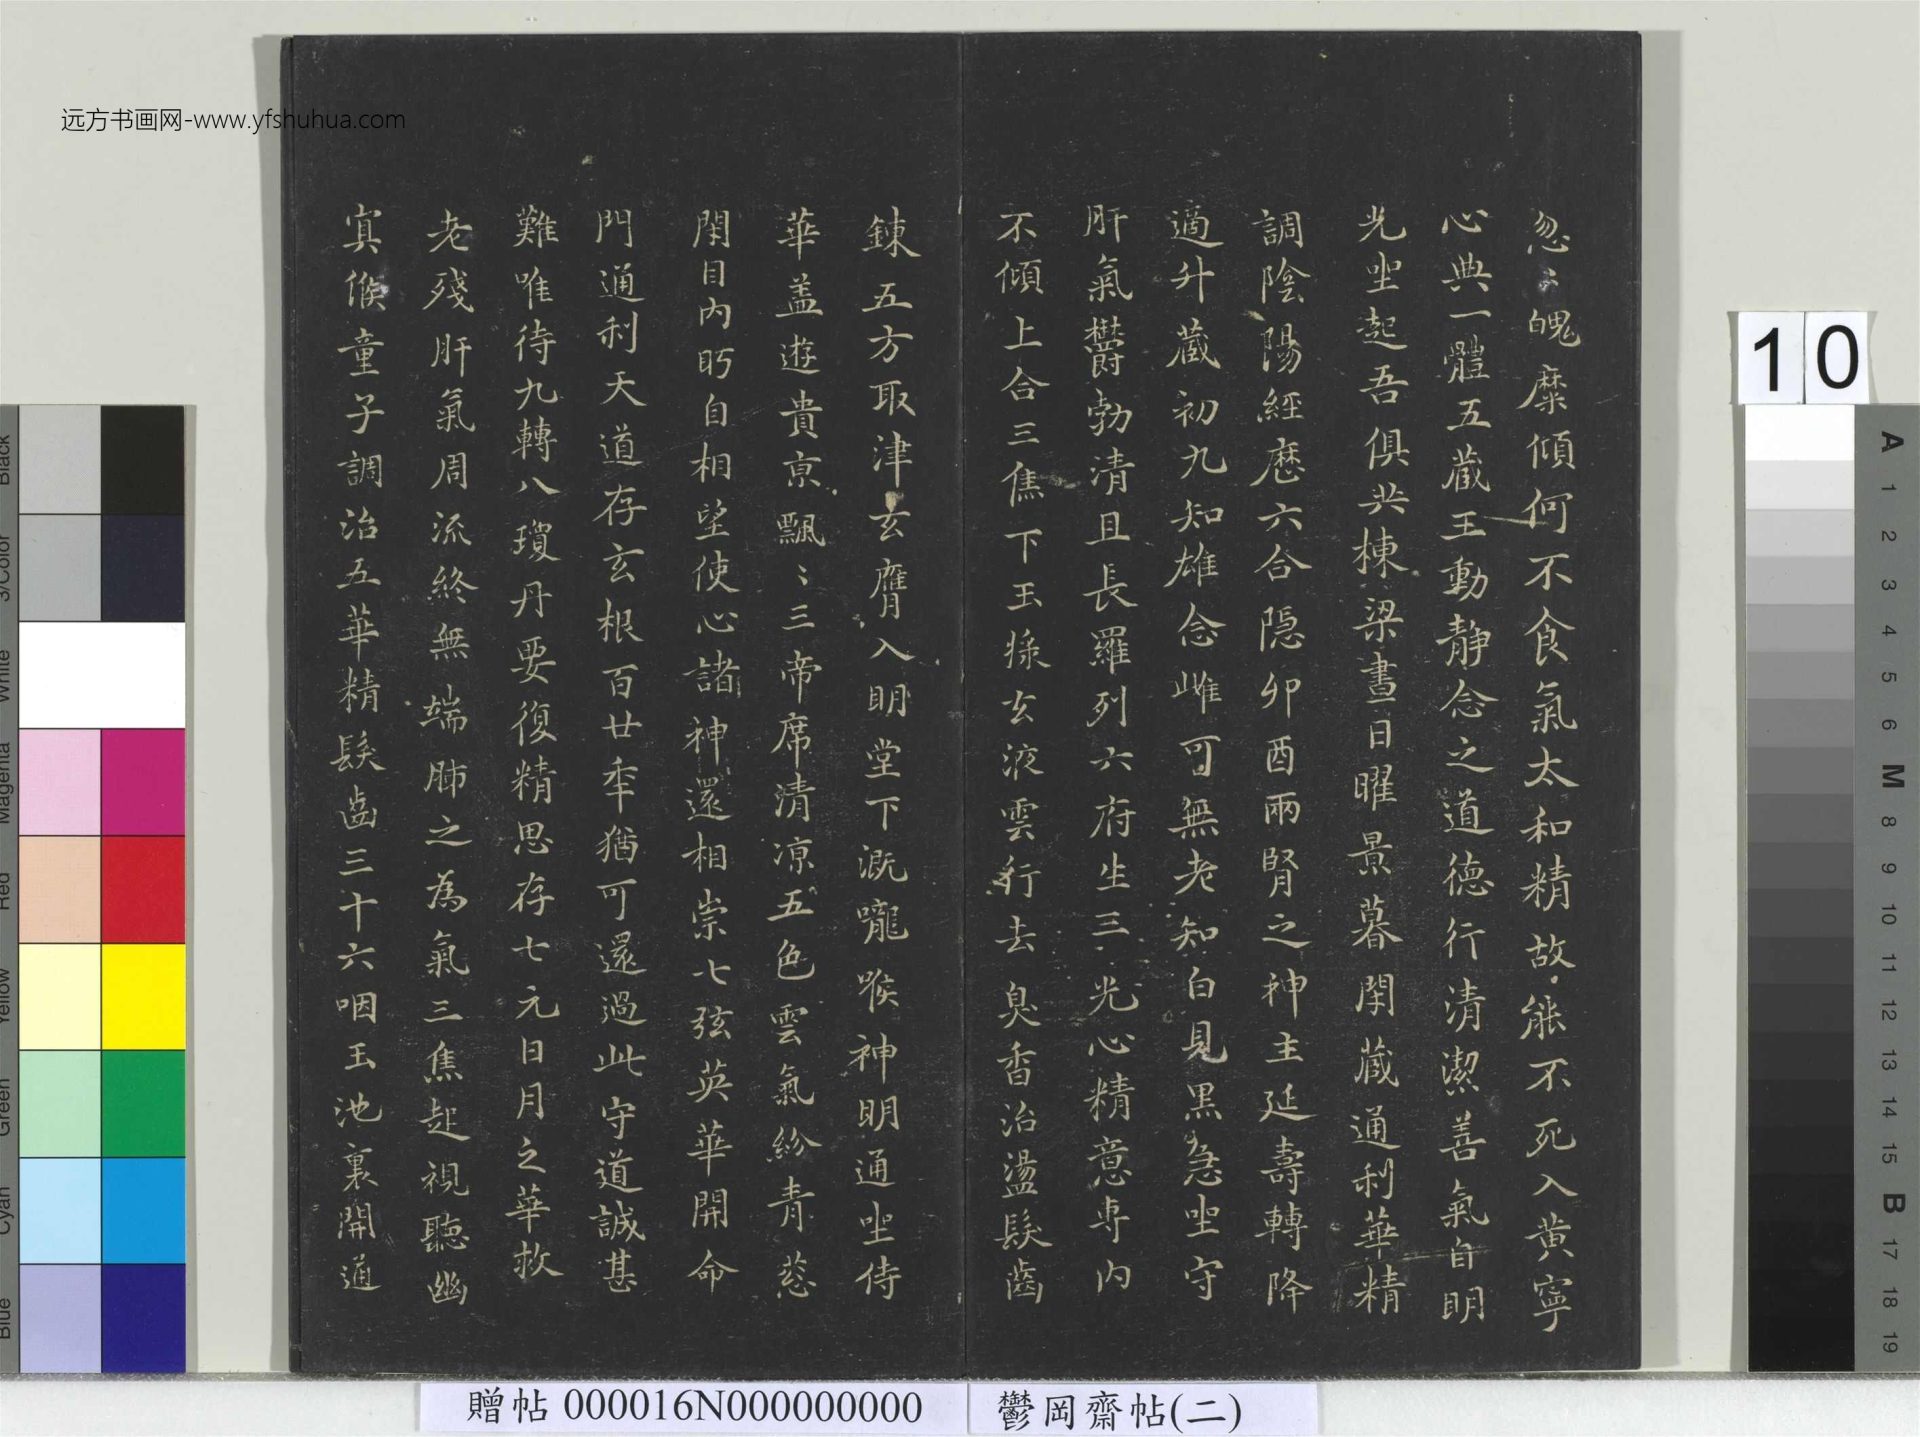 远方书画网-www.yfshuhua.com
忽之魄糜傾何不食氣太和精故能不死入黃寧
心典一體五藏王動靜念之道德行清潔善氣自明
光坐起吾俱共棟梁晝日曜景暮閉藏通利華精
調陰陽經歷六合隱卯酉兩腎之神主延壽轉降
適升藏初九知雄念雌可無老知白見黑急坐守
肝氣欝勃清且長羅列六府生三光心精意專內
不傾上合三焦下玉漿玄液雲行去臭香治盪髮齒
鍊五方取津玄膺入明堂下溉嚨喉神明通坐侍
華蓋遊貴京飄〻三帝席清涼五色雲氣紛青葱
閉目內眄自相望使心諸神還相崇七弦英華開命
門通利天道存玄根百廿年猶可還過此守道誠甚
難唯待九轉八瓊丹要復精思存七元日月之華救
老殘肝氣周流終無端肺之為氣三焦起視聽幽
冥候童子調治五華精髮齒三十六咽玉池裏開通
10
A 1 2 3 4 5 6 M 8 9 10 11 12 13 14 15 B 17 18 19
Black
3/Color
White
Magenta
Red
Yellow
Green
Cyan
Blue
贈帖 000016N000000000
鬱岡齋帖(二)